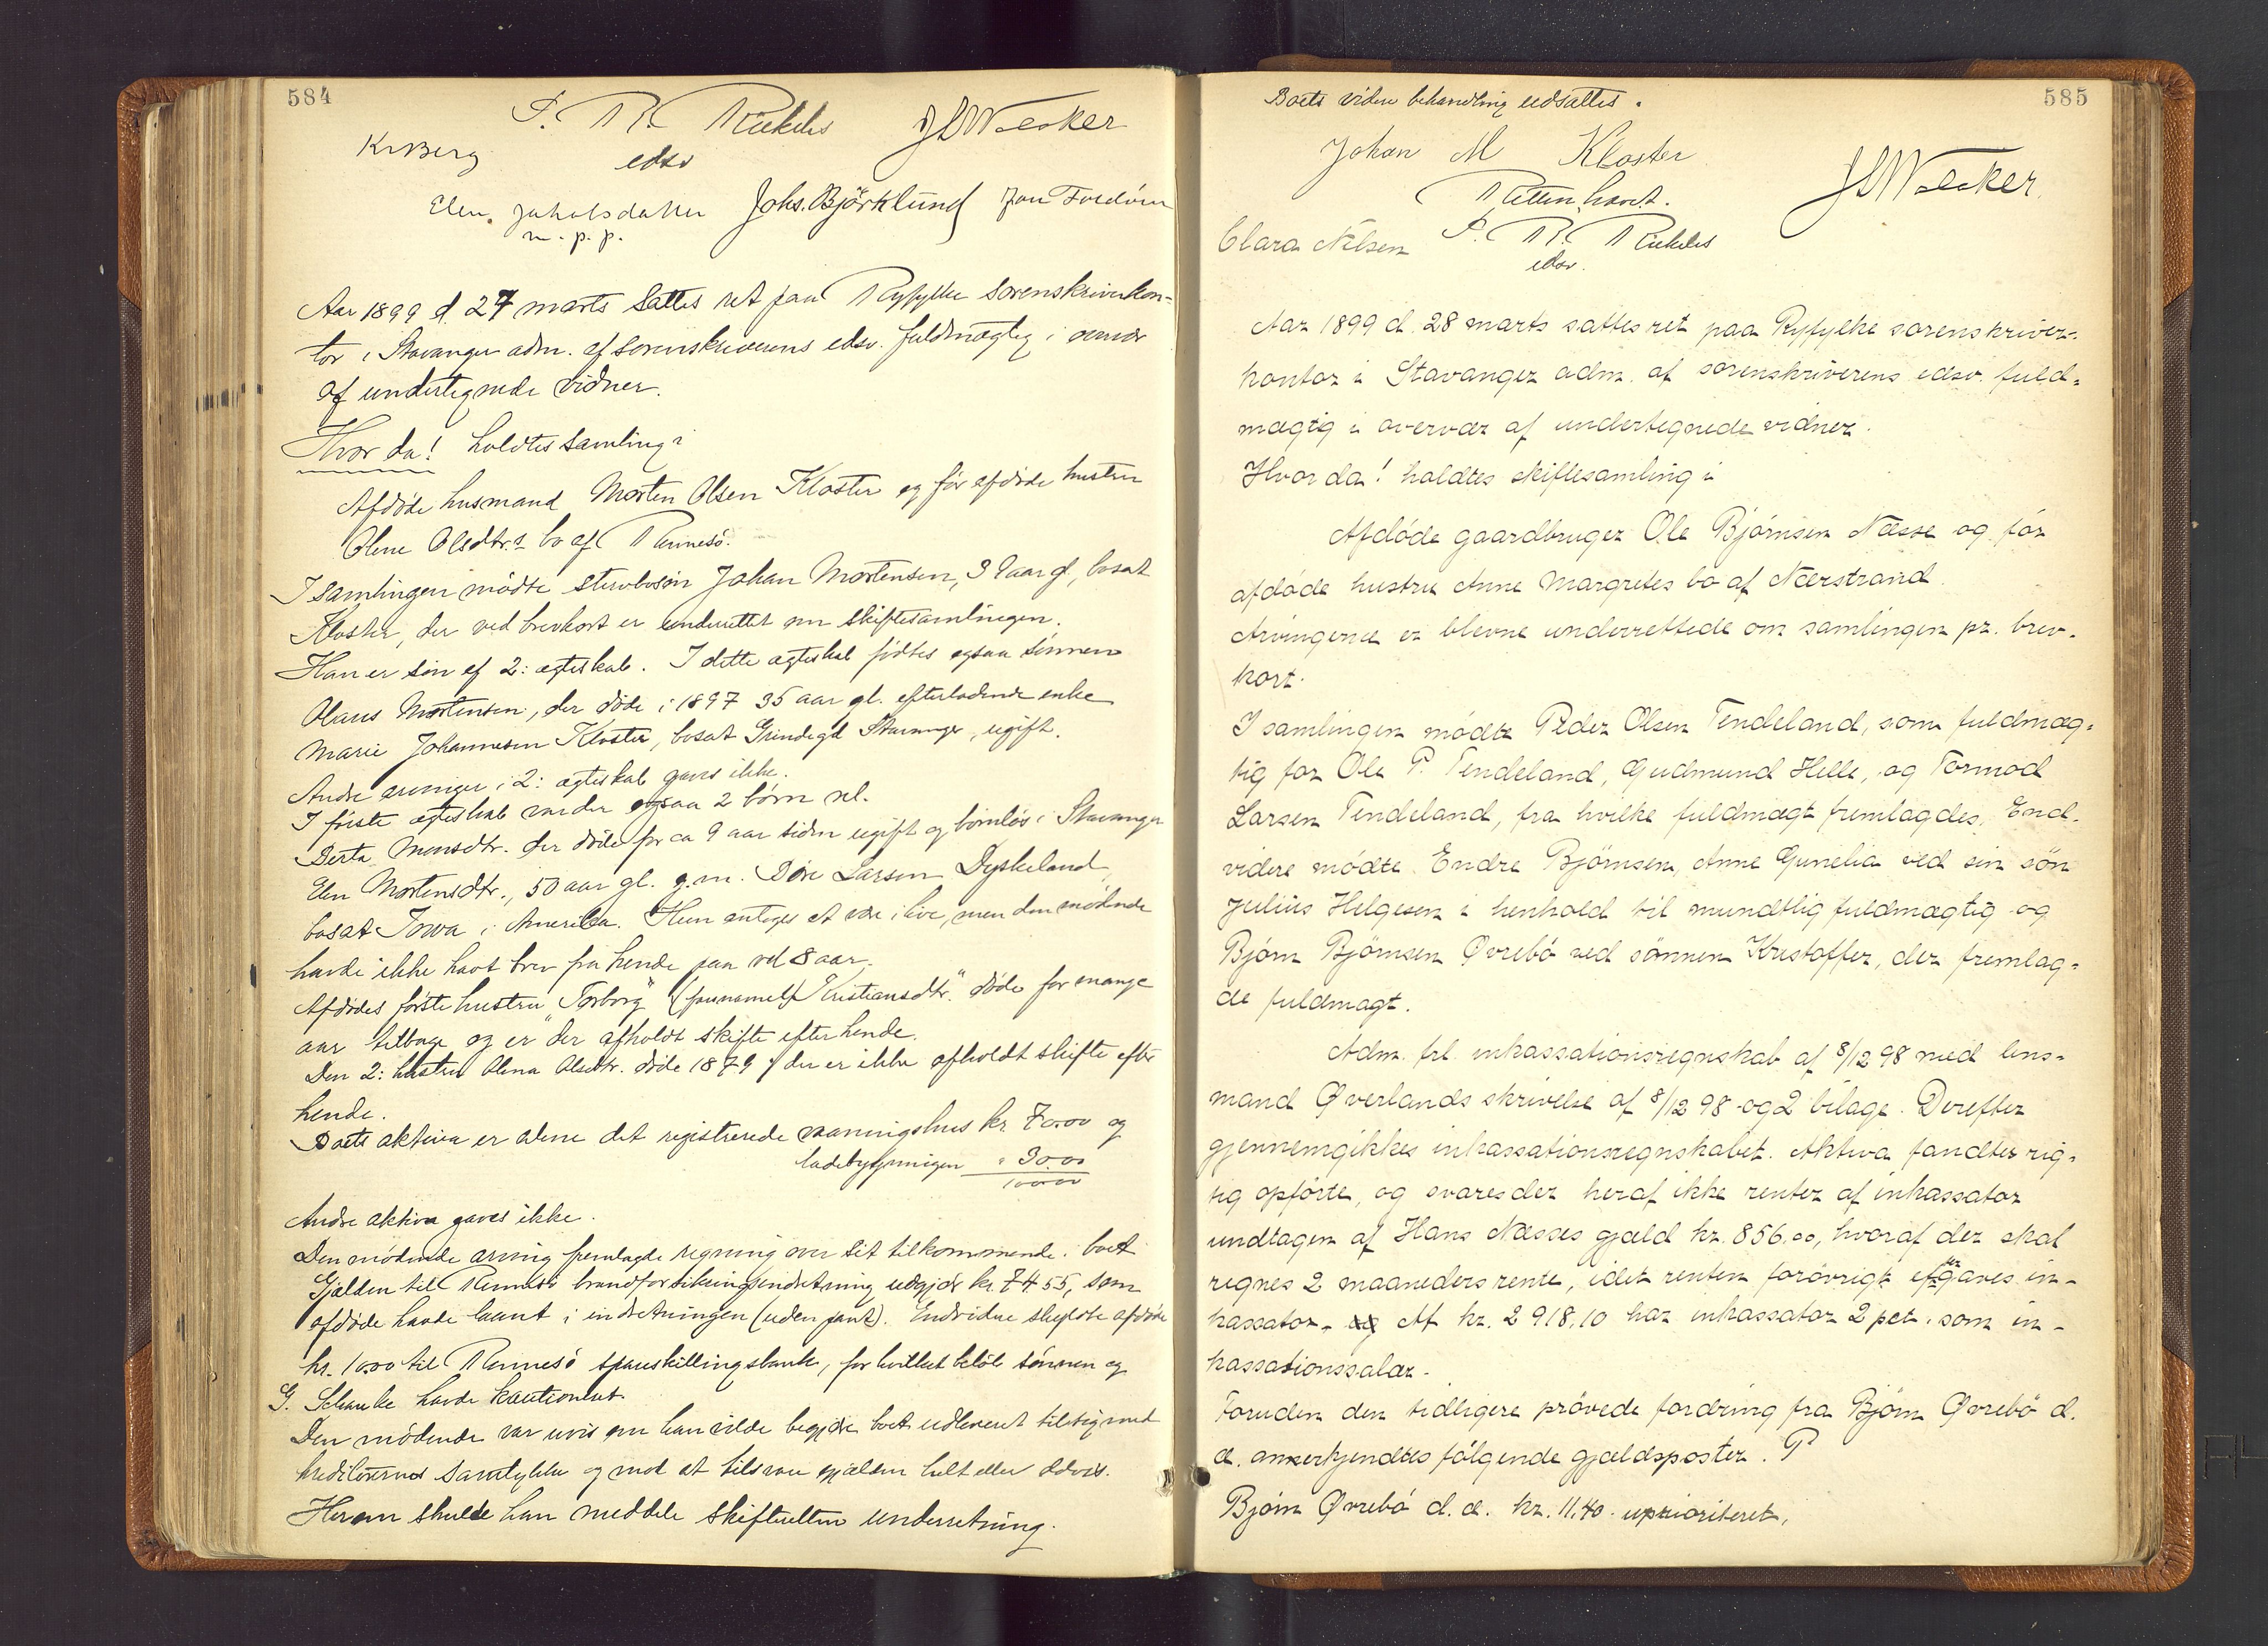 584
Kr Berg
Elen Jakobsdatter Johs. Björklund
m. p. p.
edsv
Aar 1899 d. 27 marts sattes ret paa Ryfylke sorenskriverkon-
tor i Stavanger adm. af sorenskriverens edsv. fuldmægtig i overvær
af undertegnede vidner.
Hvor da! holdtes samling i
Afdöde husmand Morten Olsen Kloster og för afdöde hustru
Olene Olsdtr.s bo af Rennesö.
I samlingen mödte stervbosön Johan Mortensen, 39 aar gl, bosat
Kloster, der ved brevkort er underrettet om skiftesamlingen.
Han er sön af 2: ægteskab. I dette ægteskab födtes ogsaa sönnen
Olaus Mortensen, der döde i 1897 35 aar gl. efterladende enke
Marie Johannesen Kloster, bosat Grindegd Stavanger, ugift.
Andre arvinger i 2: ægteskab gaves ikke.
I förste ægteskab var der ogsaa 2 börn vel.
Berta Monsdtr. der döde for ca 9 aar siden ugift og börnlös i Stavanger
Elen Mortensdtr., 50 aar gl. g. m. Döre Larsen Dyskeland,
bosat Iowa i Amerika. Hun antages at være i live, men den mödende
havde ikke havt brev fra hende paa vel 8 aar.
Afdödes förste hustru "Torborg" (fornavnet) Kristiansdtr." döde for mange
aar tilbage og er der afholdt skifte efter hende.
Den 2: hustru Olena Olsdtr. döde 1879 & der er ikke afholdt skifte efter
hende.
Boets aktiva er alene det registrerede vaaningshus kr 70.00 og
ladebygningen " 30.00
100.00
Andre aktiva gaves ikke.
Den mödende arving fremlagde regning over sit tilkommende i boet
Gjælden til Rennesö brandforsikringsindretning udgjör kr. 74 55, som
afdöde havde laant i indretningen (uden pant). Endvidere skyldte afdöde
kr. 10.00 til Rennesö sparskillingsbank, for hvilket belöb sönnen og
G. Schanke havde kautioneret.
Den mödende var uvis om han vilde begjære boet udleveret til sig med
kreditorernes samtykke og mod at tilsvare gjælden helt eller delvis.
Herom skulde han meddele skifteretten underretning.
585
Boets videre behandling udsattes.
Johan M Kloster
Clara Nilsen
edsv.
Aar 1899 d. 28 marts sattes ret paa Ryfylke sorenskriver-
kontor i Stavanger adm. af sorenskriverens edsv. fuld-
mægtig i overvær af undertegnede vidner.
Hvor da! holdtes skiftesamling i
Afdöde gaardbruger Ole Björnsen Næsse og för
afdöde hustru Anne Margretes bo af Nærstrand.
Arvingerne er blevne underrettede om samlingen pr. brev-
kort.
I samlingen mödte Peder Olsen Tendeland, som fuldmæg-
tig for Ole P. Tendeland, Gudmund Helle, og Tormod
Larsen Tendeland, fra hvilke fuldmagt fremlagdes. End-
videre mödte Endre Björnsen, Anne Gunelia ved sin sön
Julius Helgesen i henhold til mundtlig fuldmægtig og
Björn Björnsen Øvrebö ved sönnen Kristoffer, der fremlag-
de fuldmagt.
Adm. frl. inkassationsregnskab af 8/12 98 med lens-
mand Øverlands skrivelse af 8/12 98 og 2 bilage. Derefter
gjennemgikkes inkassationsregnskabet. Aktiva fandtes rig-
tig opförte, og svares der heraf ikke renter af inkassator
undtagen af Hans Næsses gjæld kr. 856.00, hvoraf der skal
regnes 2 maaneders rente, idet renten forövrigt efgaves in-
kassator. Af kr. 2 918,10 har inkassator 2 pct. som in-
kassationssalær.
Foruden den tidligere prövede fordring fra Björn Øvrebö d.
æ. annerkjendtes fölgende gjældsposter. P
Björn Øvrebö d. æ. kr. 11.40. uprioriteret,